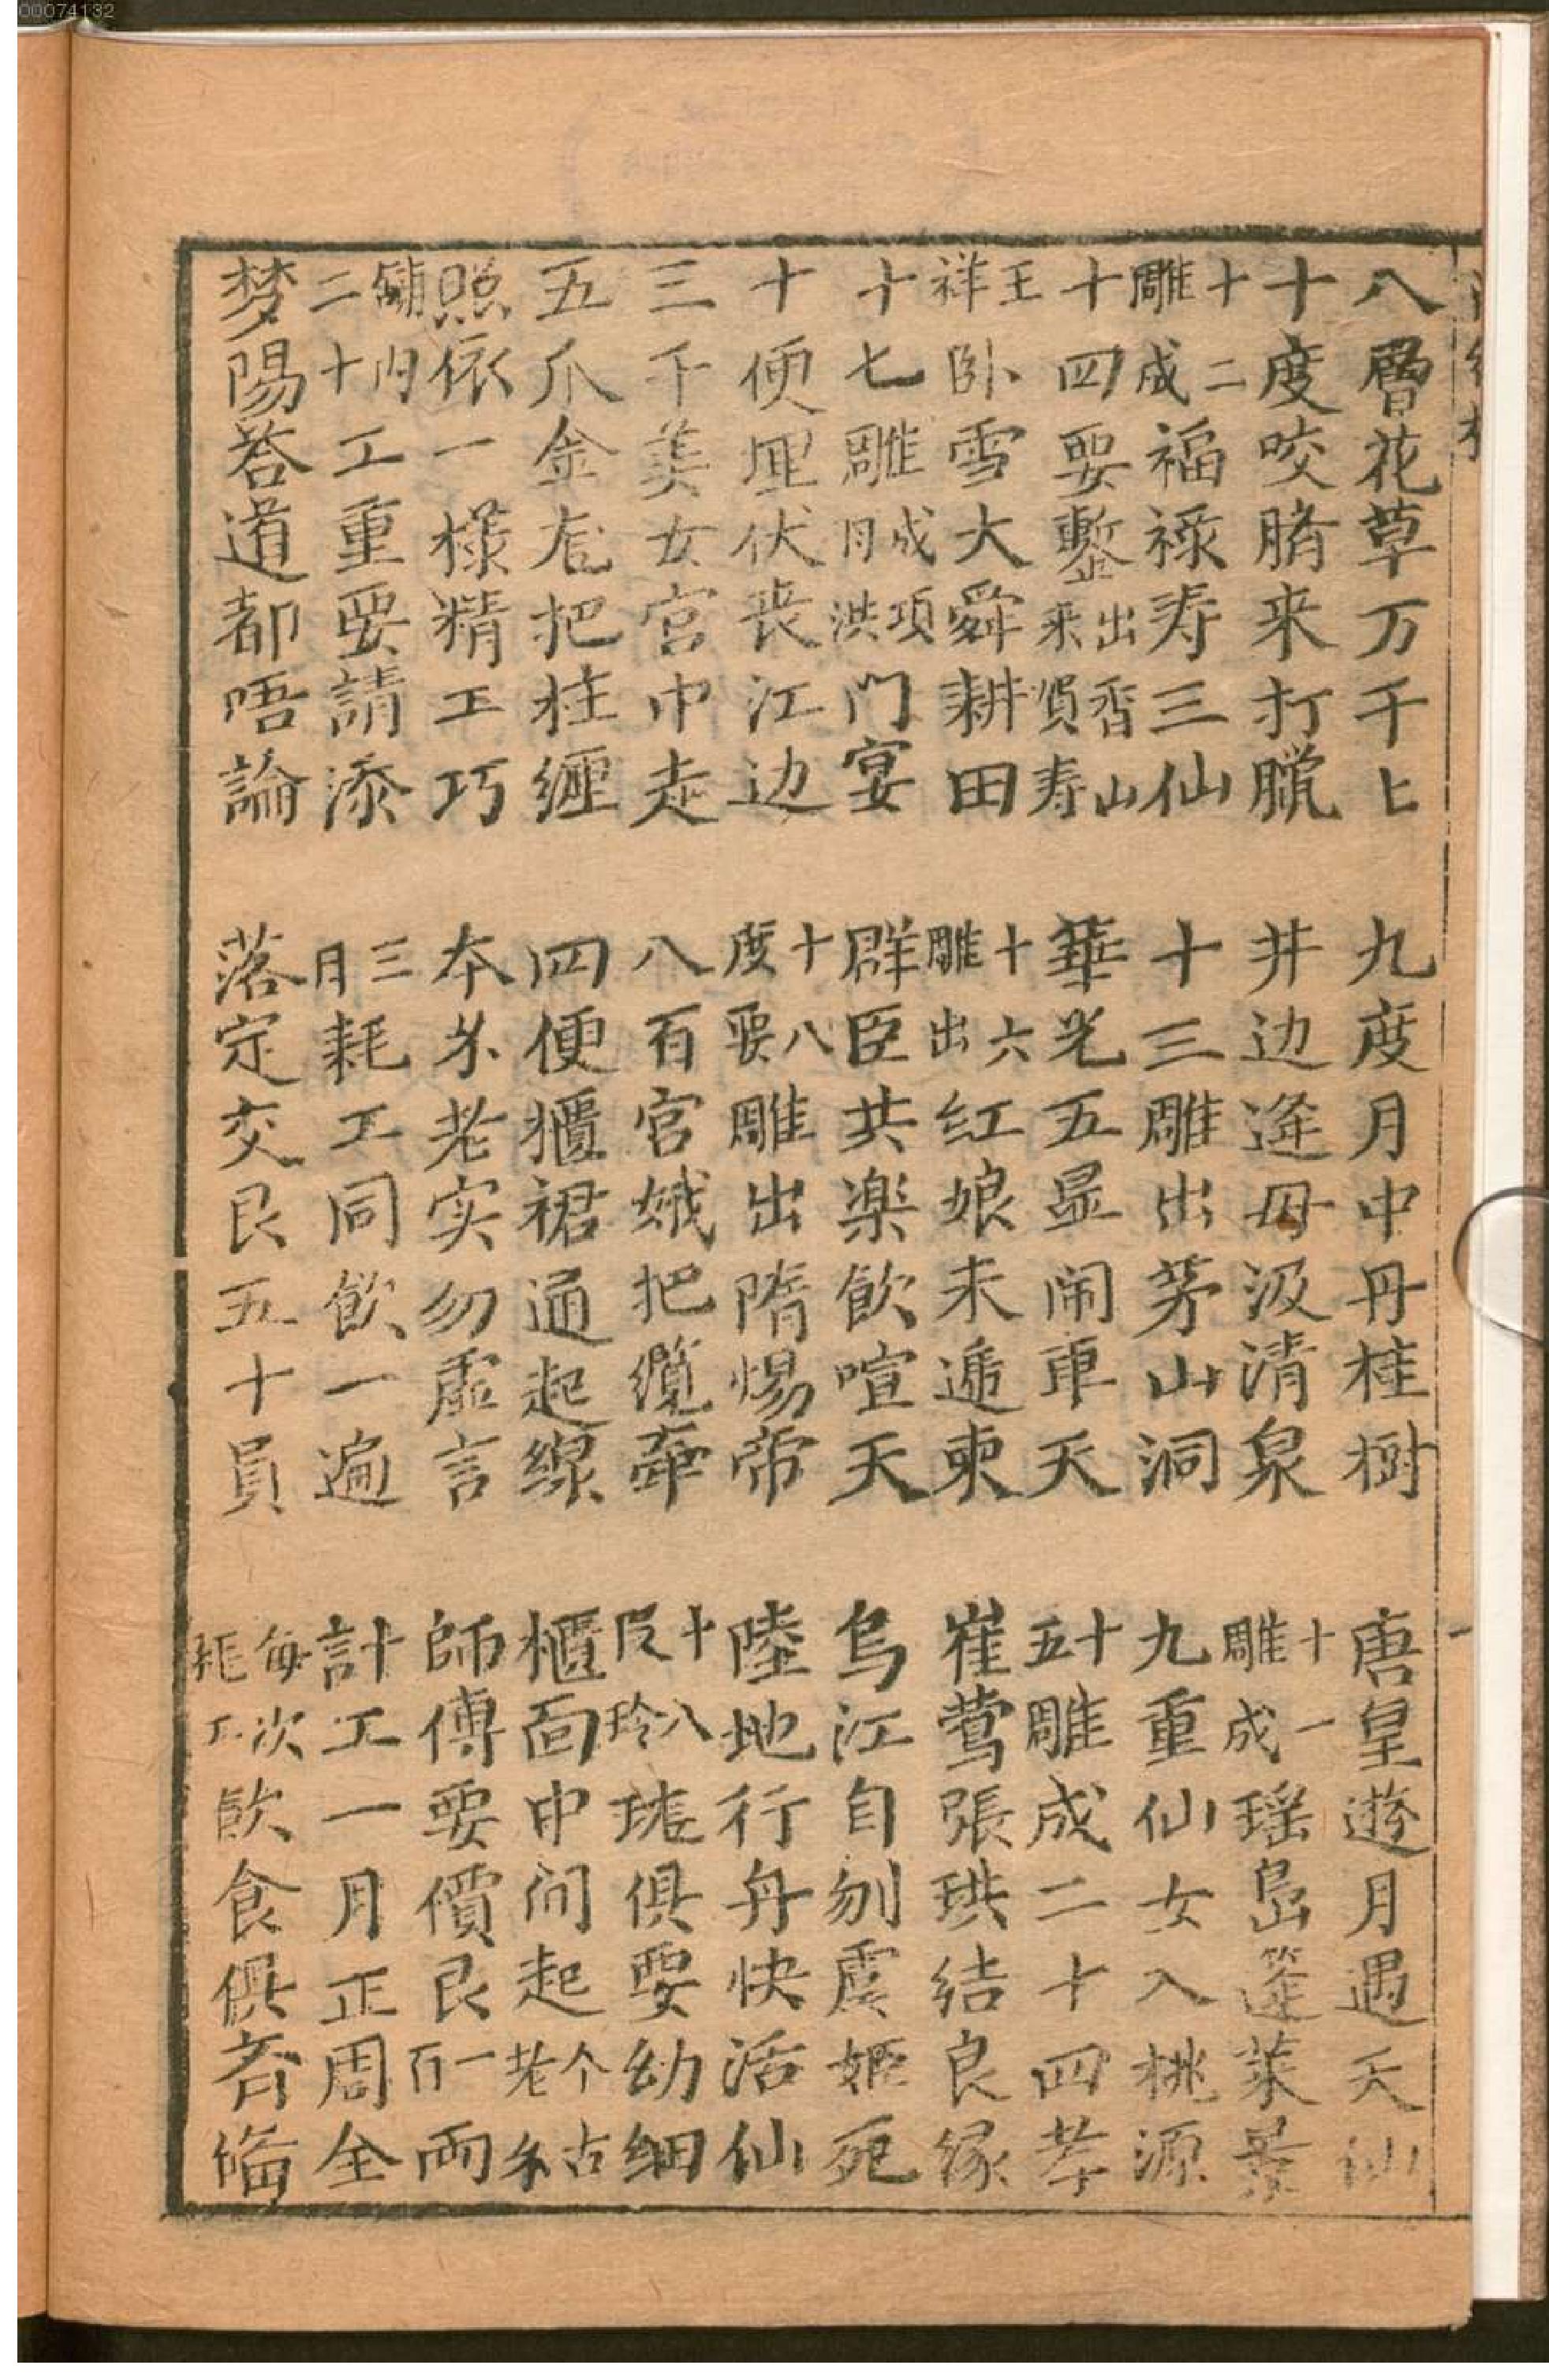 八層花草万千上
九度月中丹桂樹
唐皇遊月遇天仙
十度咬臍来打臘
井边逢母汲清泉
十一雕成瑶島蓬莱景
十二雕成福禄寿三仙
十三雕出茅山洞
九重仙女入桃源
十四要鏨出香山来賀寿
華光五显闹東天
十五雕成二十四孝
王祥卧雪大舜耕田
十六雕出红娘来遞柬
崔莺張珙结良缘
十七雕成項月洪門宴
群臣共楽飲喧天
烏江自刎虞姬死
十便埋伏丧江边
十八度要雕出隋惕帝
陸地行舟快活仙
三千美女宫中走
八百宫娥把纜牵
十八反玲珑俱要幼细
五爪金龙把柱纒
四便櫃裙通起線
櫃面中间起个古老
照依一樣精工巧
本分老实勿虚言
師傅要價艮一百両
鋪内二十工重要請添
三月耗工同飲一遍
計工一月正周全
梦陽荅道都唔論
落定交艮五十員
每次耗工飲食俱齐俻
一
00074132